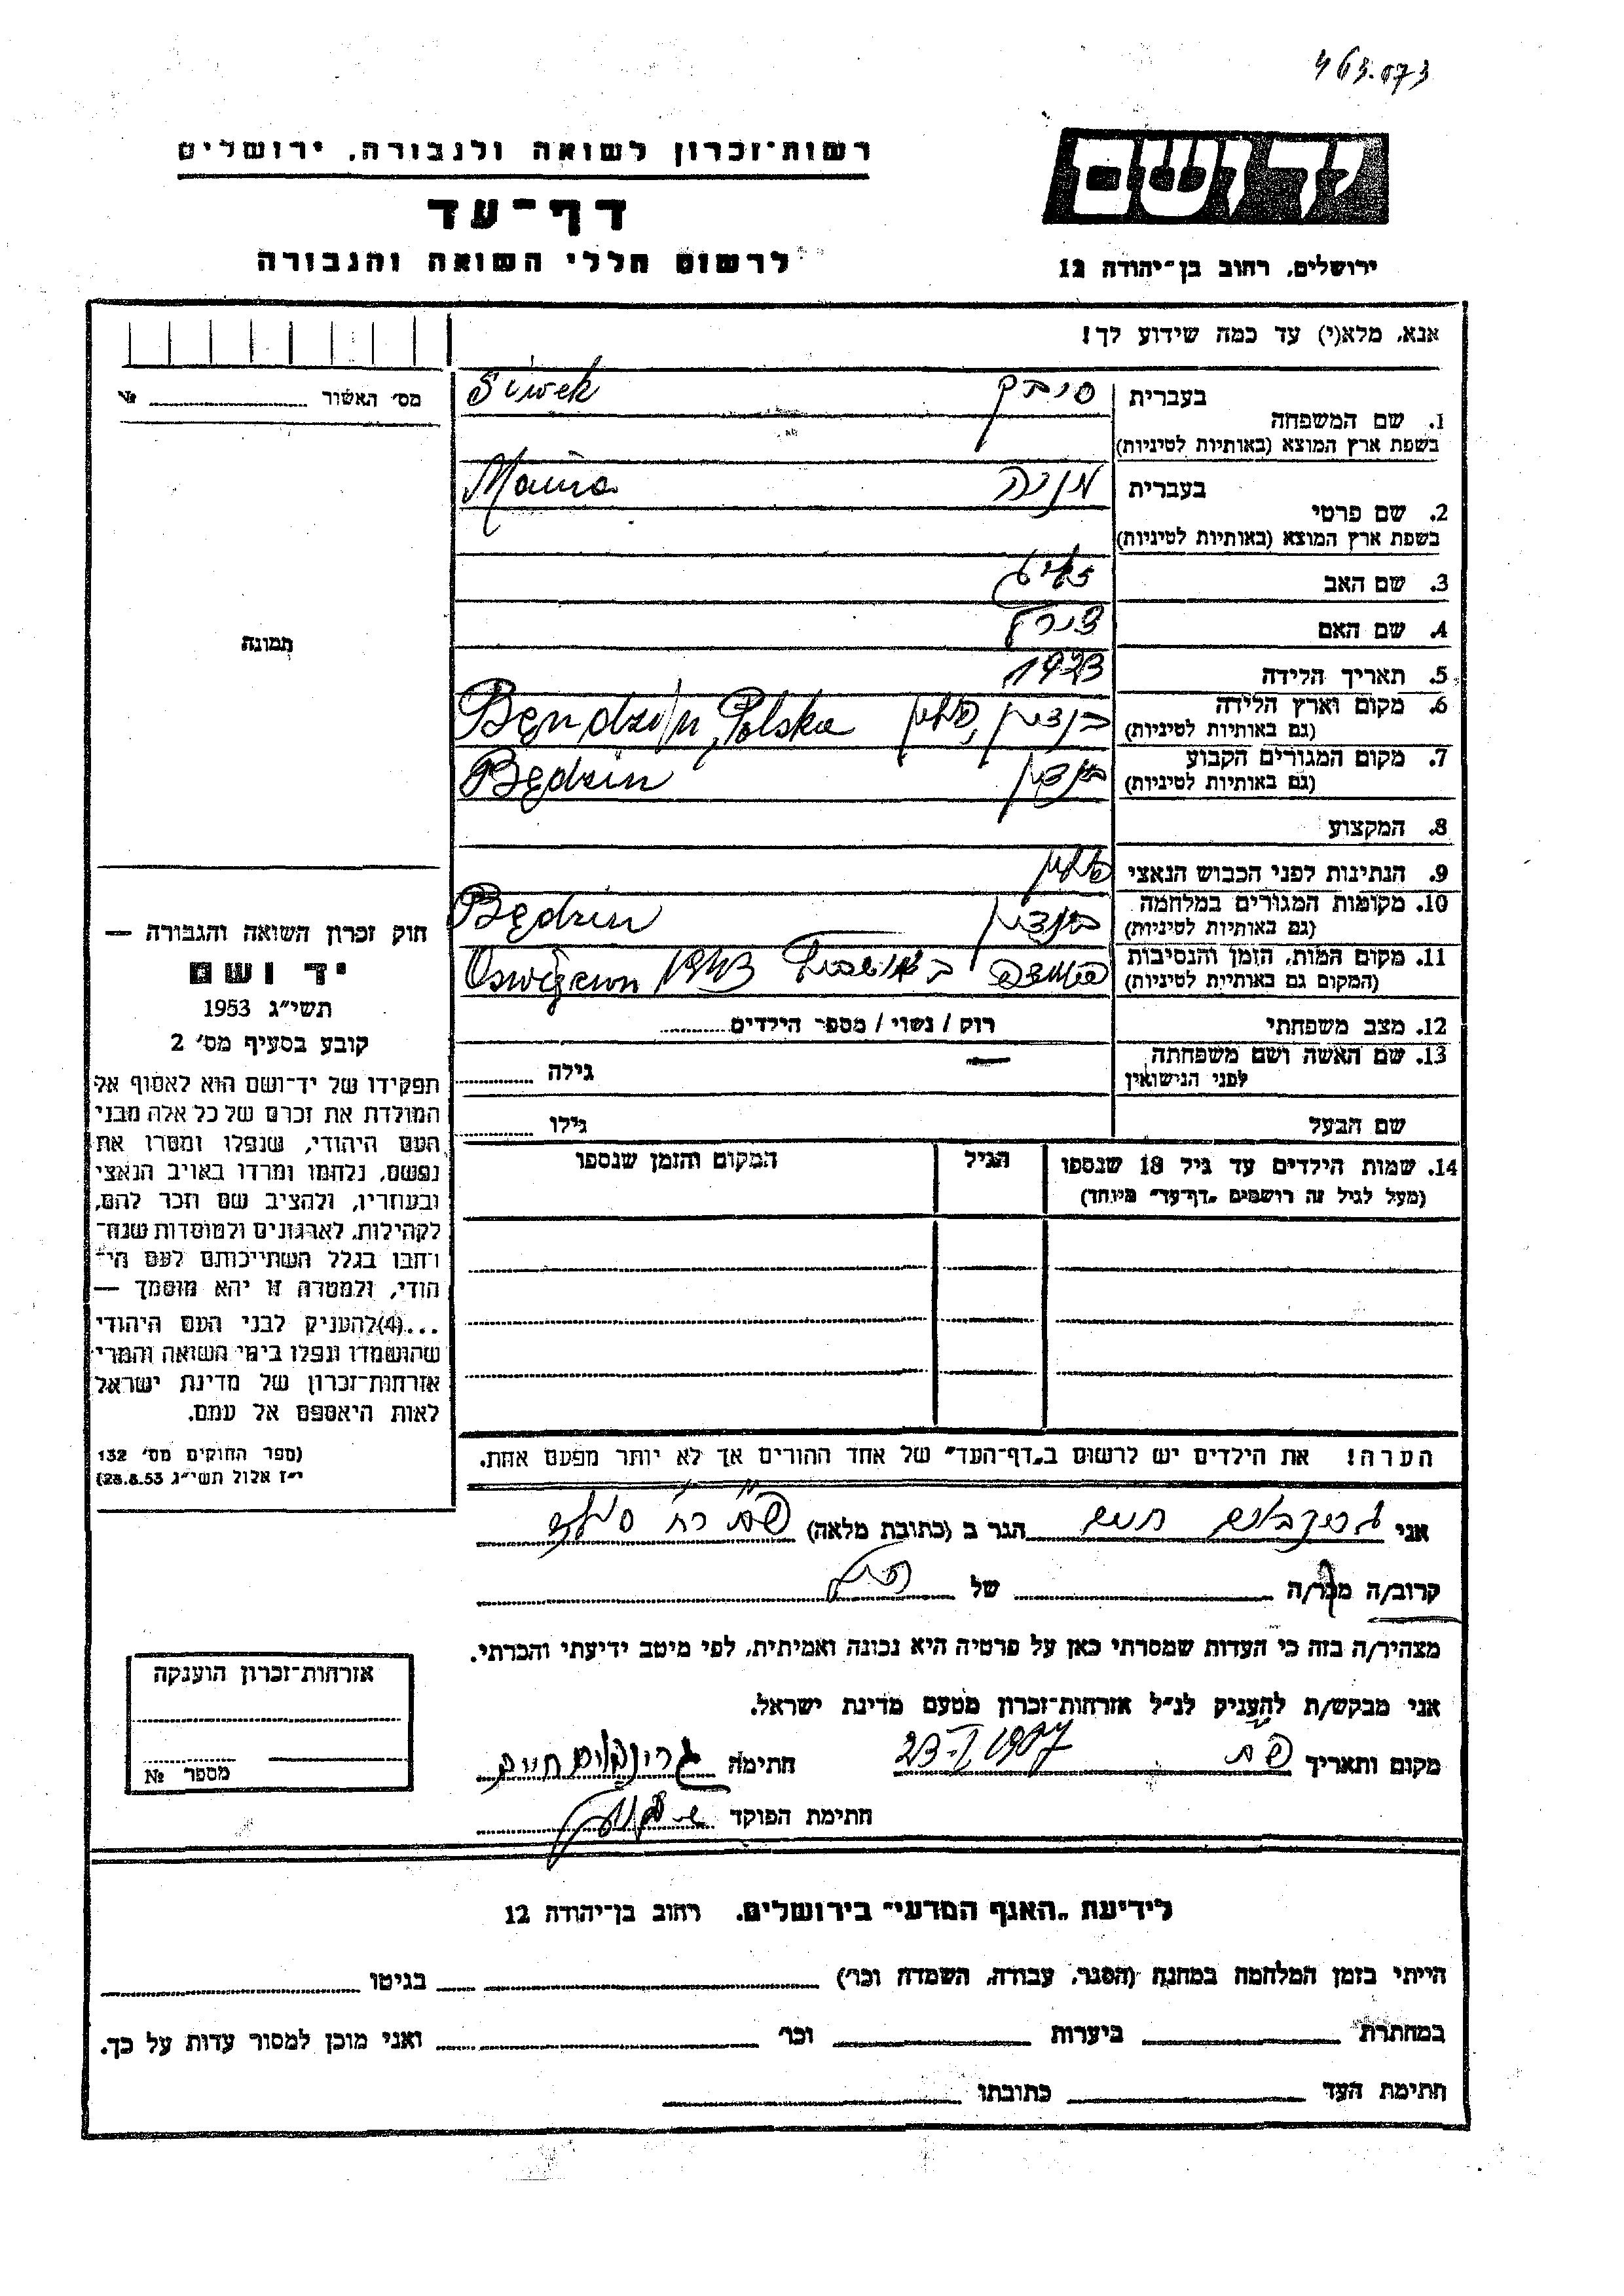 463.073
רשות־זכרון לשואה ולגבורה, ירושלים
יד ושם
דף־עד
לרשום חללי השואה והגבורה
ירושלים, רחוב בן־יהודה 12
אנא, מלא(י) עד כמה שידוע לך!
מס׳ האשור № 
בעברית סיבק Siwek
1. שם המשפחה
בשפת ארץ המוצא (באותיות לטיניות)
בעברית מניה Mania
2. שם פרטי
בשפת ארץ המוצא (באותיות לטיניות)
3. שם האב
4. שם האם
5. תאריך הלידה 1923
6. מקום וארץ הלידה בנדצין, פולין Bendzin, Polska
(גם באותיות לטיניות)
7. מקום המגורים הקבוע בנדצין Będzin
(גם באותיות לטיניות)
8. המקצוע
9. הנתינות לפני הכבוש הנאצי פולין
10. מקומות המגורים במלחמה בנדצין Będzin
(גם באותיות לטיניות)
11. מקום המות, הזמן והנסיבות 1943
(המקום גם באותיות לטיניות)
12. מצב משפחתי רוק / נשוי / מספר הילדים
13. שם האשה ושם משפחתה — גילה
לפני הנישואין
שם הבעל גילו
14. שמות הילדים עד גיל 18 שנספו הגיל המקום והזמן שנספו
(מעל לגיל זה רושמים „דף־עד” מיוחד)
הערה! את הילדים יש לרשום ב„דף־העד” של אחד ההורים אך לא יותר מפעם אחת.
תמונה
חוק זכרון השואה והגבורה —
יד ושם
תשי״ג 1953
קובע בסעיף מס׳ 2
תפקידו של יד־ושם הוא לאסוף אל
המולדת את זכרם של כל אלה מבני
העם היהודי, שנפלו ומסרו את
נפשם, נלחמו ומרדו באויב הנאצי
ובעוזריו, ולהציב שם וזכר להם,
לקהילות, לארגונים ולמוסדות שנח־
רבו בגלל השתייכותם לעם הי־
הודי, ולמטרה זו יהא מוסמך —
...(4)להעניק לבני העם היהודי
שהושמדו ונפלו בימי השואה והמרי
אזרחות־זכרון של מדינת ישראל
לאות היאספם אל עמם.
(ספר החוקים מס׳ 132
י״ז אלול תשי״ג 28.8.53)
אני חיים הגר ב (כתובת מלאה)
קרוב/ה מכר/ה של
מצהיר/ה בזה כי העדות שמסרתי כאן על פרטיה היא נכונה ואמיתית, לפי מיטב ידיעתי והכרתי.
אני מבקש/ת להעניק לנ״ל אזרחות־זכרון מטעם מדינת ישראל.
מקום ותאריך 23-I-1957 חתימה גרינבוים חיים
חתימת הפוקד
אזרחות־זכרון הוענקה
מספר №
לידיעת „האגף המדעי” בירושלים, רחוב בן־יהודה 12
הייתי בזמן המלחמה במחנה (הסגר, עבודה, השמדה וכו׳) בגיטו
במחתרת ביערות וכו׳ ואני מוכן למסור עדות על כך.
חתימת העד כתובתו